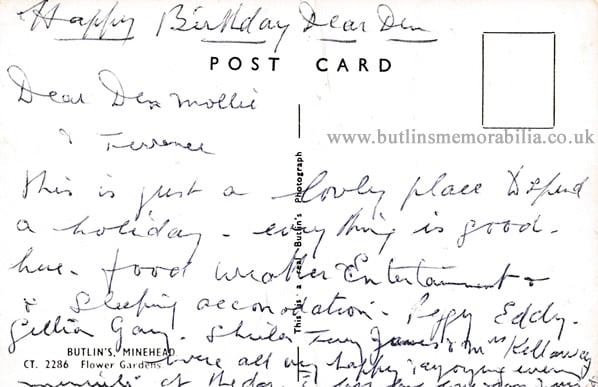 Happy Birthday Dear Den
POST CARD
Dear Den Mollie
& Terrence
www.butlinsmemorabilia.co.uk
This is just a lovly place to spend
a holiday - everything is good.
here. food weather Entertainment &
& Sleeping accomodation. Peggy Eddy.
Gillian Gary. Sheila Terry James & Mrs Kellaway
BUTLIN'S, MINEHEAD
CT. 2286 Flower Gardens
were all very happy & enjoying every
of the day
This is a real Butlin's Photograph